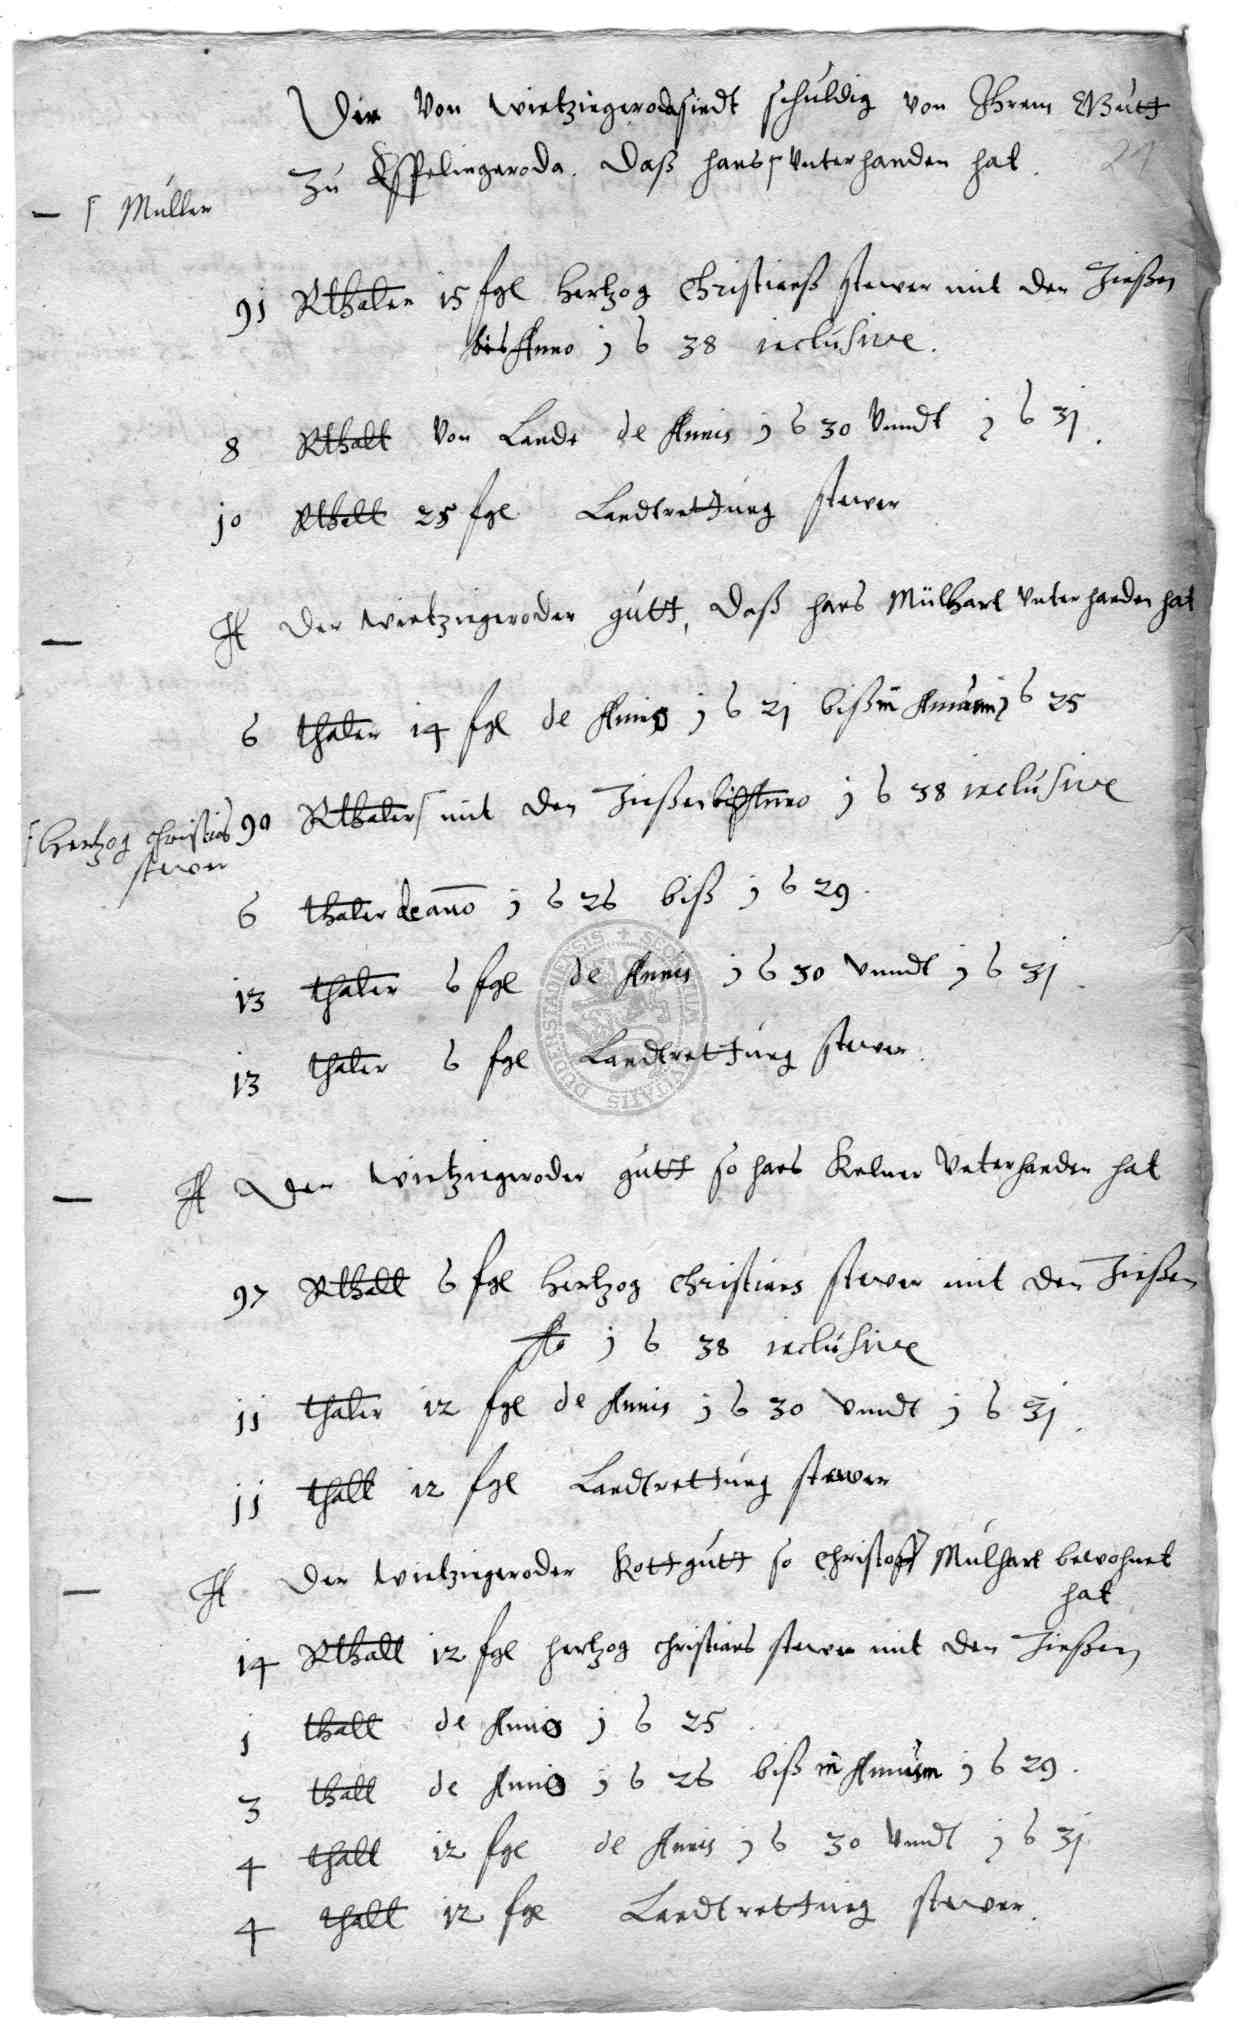 Die Von wintzingeroda sindt schuldig von Ihrem Gutt
24
Zu Esplingeroda. Daß hans ſ Unterhanden hat.
ſ Müller
91 Rthaler 15 fgl Hertzog Christianß stewer mit den Zinßen
bis Anno j 6 38 inclusive.
8 Rthall von Lande de Annis j 6 30 Vnndt j 6 3j.
jo Rthall 25 fgl Landtrettung stewer
Der wintzingeroder gutt, Daß hans Mülhart Unterhanden hat
6 thaler 14 fgl de Annis j 6 2j biß in Annum j 6 25
90 Rthaler ſ mit den Zinßen biß Anno j 6 38 inclusive
ſ Hertzog Christians
stewer
6 thaler de anno j 6 26 biß j 6 29.
j3 thaler 6 fgl de Annis j 6 30 Vnndt j 6 3j.
j3 thaler 6 fgl Landtrettung stewer.
SECRETUM CIVITATIS DUDERSTADIENSIS
Der wintzingeroder gutt so hans Kelner Unterhanden hat
97 Rthall 6 fgl Hertzog Christians stewer mit den Zinßen
Ao j 6 38 inclusive
jj thaler 12 fgl de Annis j 6 30 vnndt j 6 3j.
jj thall 12 fgl Landtrettung stewer
Der wintzingeroder Kottgutt so Christoff Mülhart bewohnet
hat
14 Rthall 12 fgl hertzog christians stewer mit den Zinßen
j thall de Annis j 6 25.
3 thall de Annis j 6 26 biß in Annum j 6 29.
4 thall 12 fgl de Annis j 6 30 Vnndt j 6 3j
4 thall 12 fgl Landtrettung stewer.